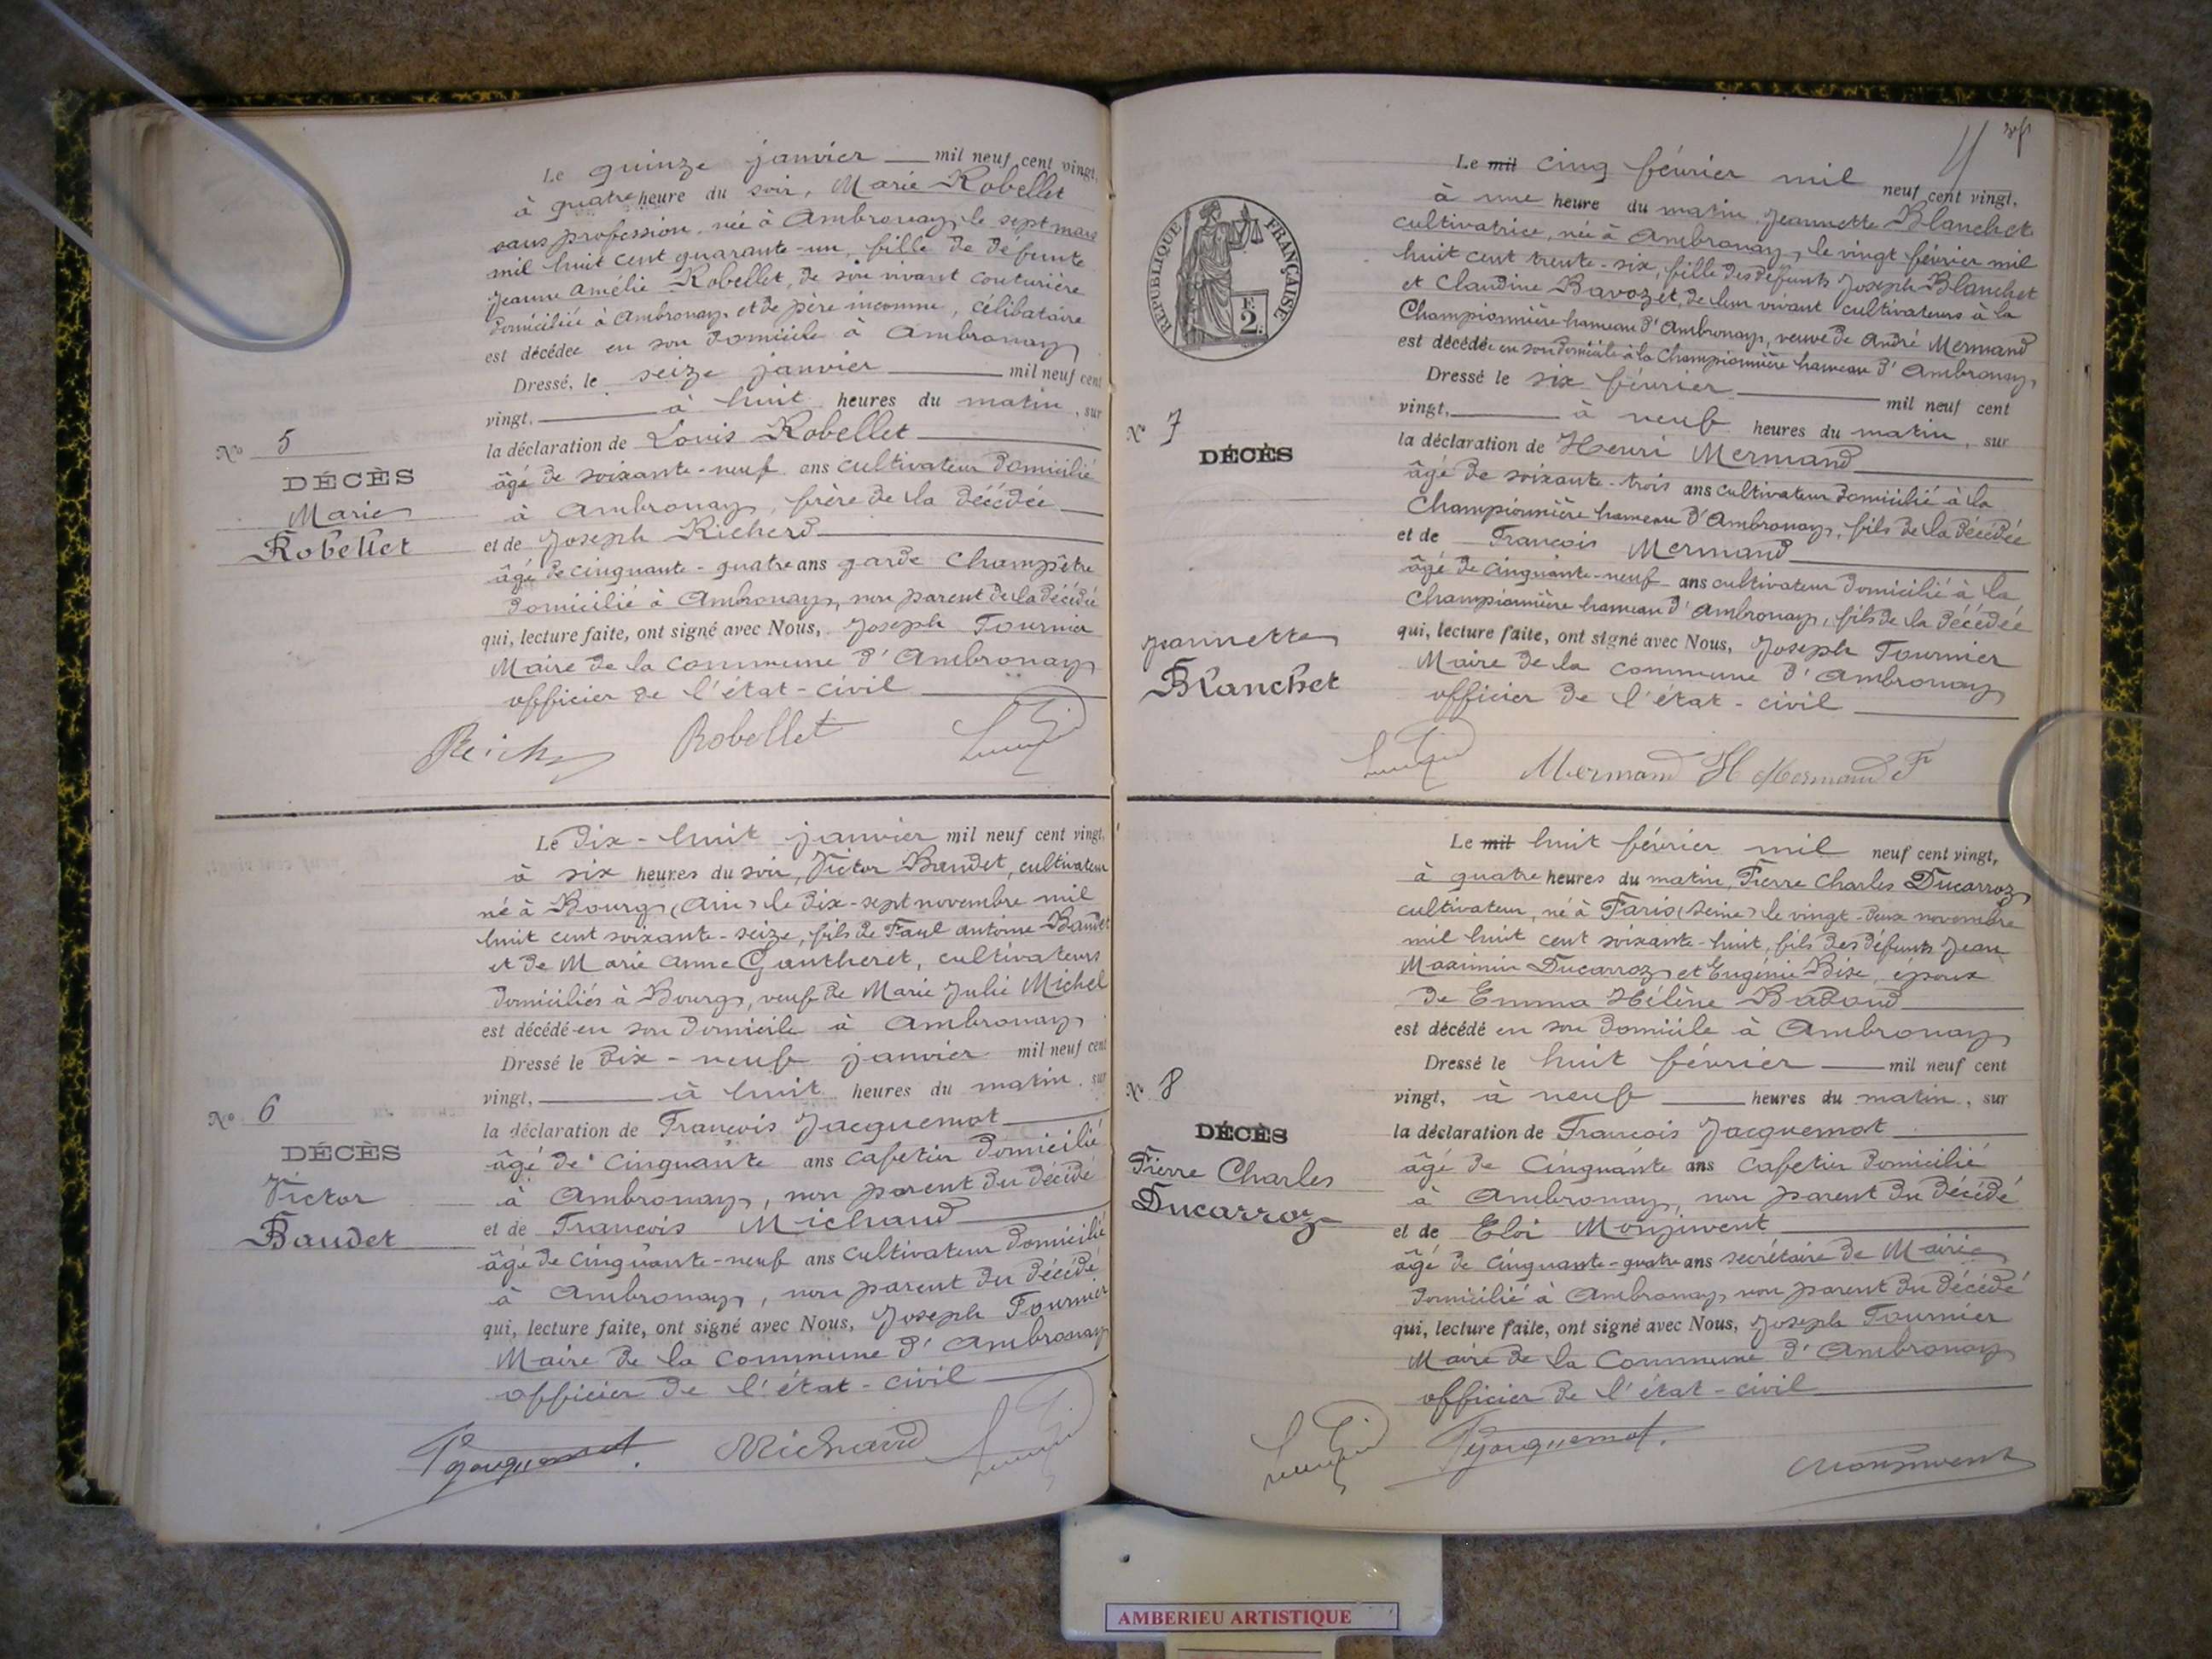 Le quinze janvier mil neuf cent vingt,
à quatre heure du soir, Marie Robellet
sans profession née à Ambronay, le sept mars
mil huit cent quarante-un, fille de défunte
Jeanne Amélie Robellet, de son vivant couturière
domiciliée à Ambronay et de père inconnu, célibataire
est décédée en son domicile à Ambronay
Dressé, le seize janvier mil neuf cent
vingt, à huit heures du matin, sur
la déclaration de Louis Robellet
âgé de soixante-neuf ans cultivateur domicilié
à Ambronay, frère de la décédée
et de Joseph Richerd
âgé de cinquante-quatre ans garde Champêtre
domicilié à Ambronay, non parent de la décédée
qui, lecture faite, ont signé avec Nous, Joseph Tournier
Maire de la Commune d'Ambronay
officier de l'état-civil
No 5
DÉCÈS
Marie
Robellet
Robellet
Le dix-huit janvier mil neuf cent vingt,
à six heures du soir, Victor Baudet, cultivateur
né à Bourg (Ain) le dix-sept novembre mil
huit cent soixante-seize, fils de Paul Antoine Baudet
et de Marie Anne Gautheret, cultivateurs
domiciliés à Bourg, veuf de Marie Julie Michel
est décédé en son domicile à Ambronay
Dressé le dix-neuf janvier mil neuf cent
vingt, à huit heures du matin, sur
la déclaration de François Jacquemot
âgé de Cinquante ans cafetier domicilié
à Ambronay, non parent du décédé
et de François Michaud
âgé de Cinquante-neuf ans cultivateur domicilié
à Ambronay, non parent du décédé
qui, lecture faite, ont signé avec Nous, Joseph Tournier
Maire de la Commune d'Ambronay
officier de l'état-civil
No 6
DÉCÈS
Victor
Baudet
Jacquemot. Michaud
Le mil cinq février mil neuf cent vingt,
à une heure du matin Jeannette Blanchet
cultivatrice, née à Ambronay, le vingt février mil
huit cent trente-six, fille des défunts Joseph Blanchet
et Claudine Bavozet, de leur vivant cultivateurs à la
Championnière hameau d'Ambronay, veuve de André Mermand
est décédée en son domicile à la Championnière hameau d'Ambronay
Dressé le six février mil neuf cent
vingt, à neuf heures du matin, sur
la déclaration de Henri Mermand
âgé de soixante-trois ans cultivateur domicilié à la
Championnière hameau d'Ambronay, fils de la décédée
et de François Mermand
âgé de cinquante-neuf ans cultivateur domicilié à la
Championnière hameau d'Ambronay, fils de la décédée
qui, lecture faite, ont signé avec Nous, Joseph Tournier
Maire de la commune d'Ambronay
officier de l'état-civil
RÉPUBLIQUE FRANÇAISE
F. 2.
No 7
DÉCÈS
Jeannette
Blanchet
Mermand H Mermand F
Le mil huit février mil neuf cent vingt,
à quatre heures du matin, Pierre Charles Ducarroz
cultivateur, né à Paris (Seine) le vingt-deux novembre
mil huit cent soixante-huit, fils des défunts Jean
Maximin Ducarroz et Eugénie Bise, époux
de Emma Hélène Badoud
est décédé en son domicile à Ambronay
Dressé le huit février mil neuf cent
vingt, à neuf heures du matin, sur
la déclaration de François Jacquemot
âgé de Cinquante ans Cafetier domicilié
à Ambronay, non parent du décédé
et de Eloi Monjuvent
âgé de cinquante-quatre ans secrétaire de Mairie
domicilié à Ambronay non parent du décédé
qui, lecture faite, ont signé avec Nous, Joseph Tournier
Maire de la Commune d'Ambronay
officier de l'état-civil
No 8
DÉCÈS
Pierre Charles
Ducarroz
Jacquemot. Monjuvent
AMBERIEU ARTISTIQUE